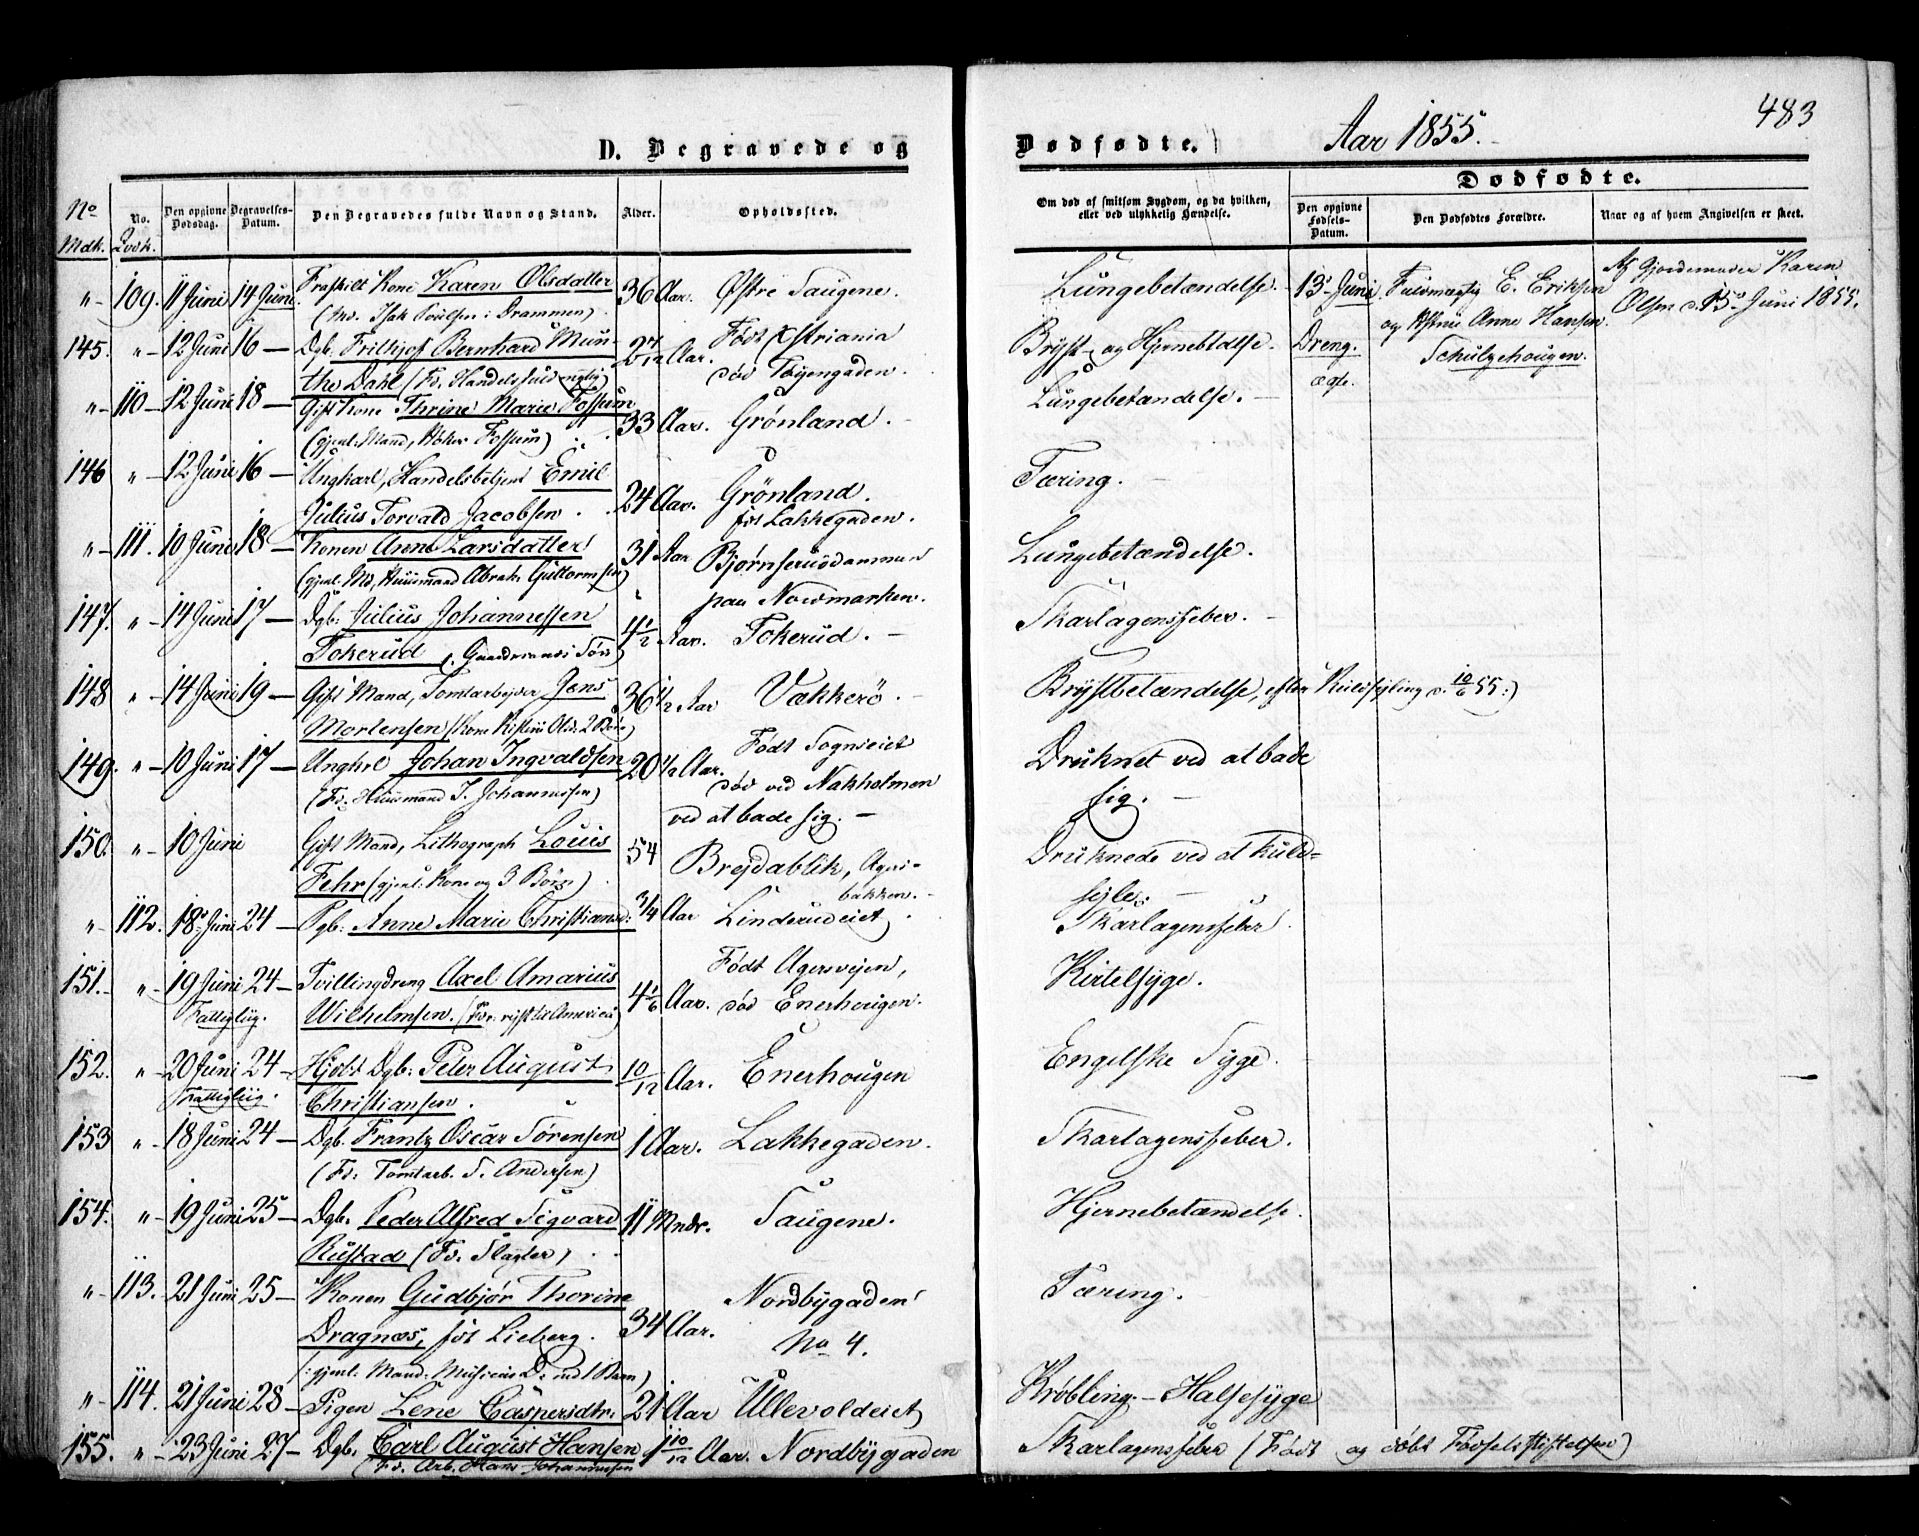 483
D. Begravede og Dødfødte. Aar 1855.
Dødfødte.
No Mdk. No. Qvdk. Den opgivne Dødsdag. Begravelses-Datum. Den Begravedes fulde Navn og Stand. Alder. Opholdssted. Om død af smitsom Sygdom, og da hvilken, eller ved ulykkelig Hændelse. Den opgivne Fødsels-Datum. Den Dødfødtes Forældre. Naar og af hvem Angivelsen er skeet.
"- 109. 11 Juni 14 Juni. Fraskilt Kone Karen Olsdatter 36 Aar. Østre Saugene. Lungebetændelse. 13 Juni Fuldmægtig E. Eriksen Af Gjordemoder Karen
(Md. Isak Poulsen i Drammen). og Hstru Anne Hansen. Olsen d. 15 Juni 1855.
145. "- 12 Juni 16 - Dgb. Frithjof Bernhard Mun- 2 7/12 Aar. Født Christiania Bryst- og Hjernebtdlse. Dreng. Schultzehougen.
the Dahl (Fd. Handelsfuldmgtig) død Tøyengaden. ægte.
"- 110 - 12 Juni 18 - Gift Kone Thrine Marie Fossum 33 Aar. Grønland. - Lungebetændelse. -
(gjenl. Mand, Høker Fossum)
146 "- 12 Juni 16 - Ungkarl, Handelsbetjent Emil 24 Aar. Grönland. Tæring. -
Julius Torvald Jacobsen. før Lakkegaden.
"- 111. 10 Juni 18 - Konen Anne Larsdatter 31 Aar Bjørnserusdammen Lungebetændelse.
(gjenl. Md, Huusmand Abrah. Guttormsen) paa Nordmarken.
147. "- 14 Juni 17 - Dgb: Julius Johannessen 4 1/2 Aar. Tokerud. - Skarlagensfeber. -
Tokerud (Gaardmands Søn)
148 "- 14 Juni 19 - Gift Mand, Tomtarbejder Jens 36 1/2 Aar Vækkerö. - Brystbetændelse, efter Kuldsejling d. 10/6 55:)
Mortensen (Kone Kistine Olsd: 2 Børn)
149. "- 10 Juni 17 - Unghrl Johan Ingvaldsen 20 1/2 Aar. Født Sognseiet Druknet ved at bade
(Fd. Huusmand I. Johannessen) død ved Nakholmen sig. -
ved at bade sig. -
150. "- 10 Juni Gift Mand, Lithograph Louis 54 Brejdablik, Agers- Druknede ved at kuld-
Fehr (gjenl: Kone og 3 Børn) bakken. - sejle. -
"- 112. 18 Juni 24 - Pgb: Anne Marie Christiansd: 3/4 Aar Linderudeiet. Skarlagensfeber.
151. "- 19 Juni 24 - Tvillingdreng Axel Amarius 4 1/6 Aar. Født Agersvejen, Kirtelsyge.
Fattiglig. Wilhelmsen. (For: rejst til America) død Enerhougen.
152. "- 20 Juni 24 - Hjdbt Dgb: Peter August 10/12 Aar. Enerhougen Engelske Syge.
Fattiglig. Christiansen.
153 "- 18 Juni 24 - Dgb. Frantz Oscar Sörensen 1 Aar. Lakkegaden. Skarlagensfeber.
(Fd: Tomtarb. S. Andersen)
154. "- 19 Juni 25 - Dgb. Peder Alfred Sigvard 11 Mndr. Saugene. Hjernebetændelse.
Rustad (Fd. Slagter)
"- 113. 21 Juni 25 - Konen Gudbjør Thorine 34 Aar. Nordbygaden Tæring.
Dragnæs, før Lieberg. No 4.
(: gjenl. Mand: Musicus D. indt 1 Barn)
"- 114. 21 Juni 28 - Pigen Lene Caspersdtr: 21 Aar Ullevoldeiet Krøbling. - Halsesyge
155. "- 23 Juni 27 - Dgb. Carl August Hansen 1 10/12 Aar. Nordbygaden Skarlagensfeber (Født og döbt Födselsstiftelsen)
(Fd. Arb. Hans Johannesen